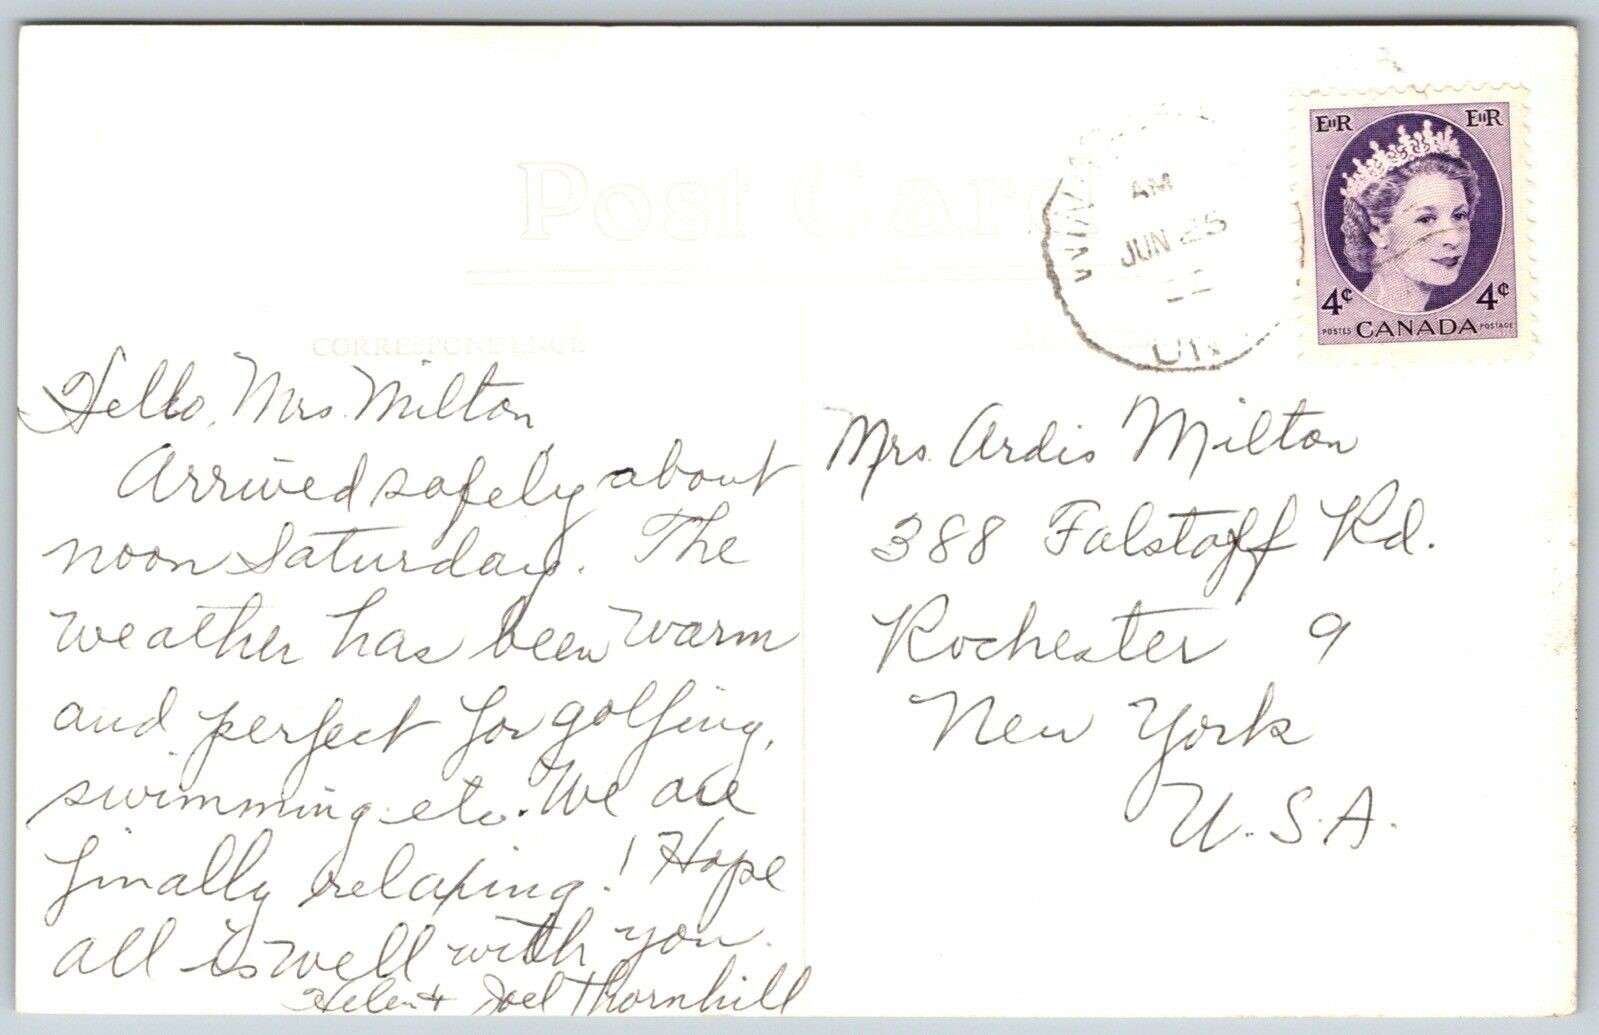 Post Card
CORRESPONDENCE
AM
JUN 25
ONT.
EIIR EIIR
4¢ 4¢
POSTES CANADA POSTAGE
Hello, Mrs. Milton
Arrived safely about
noon Saturday. The
weather has been warm
and perfect for golfing,
swimming etc. We are
finally relaxing! Hope
all is well with you.
Helen & Joel Thornhill
Mrs. Ardis Milton
388 Falstaff Rd.
Rochester 9
New York
U.S.A.